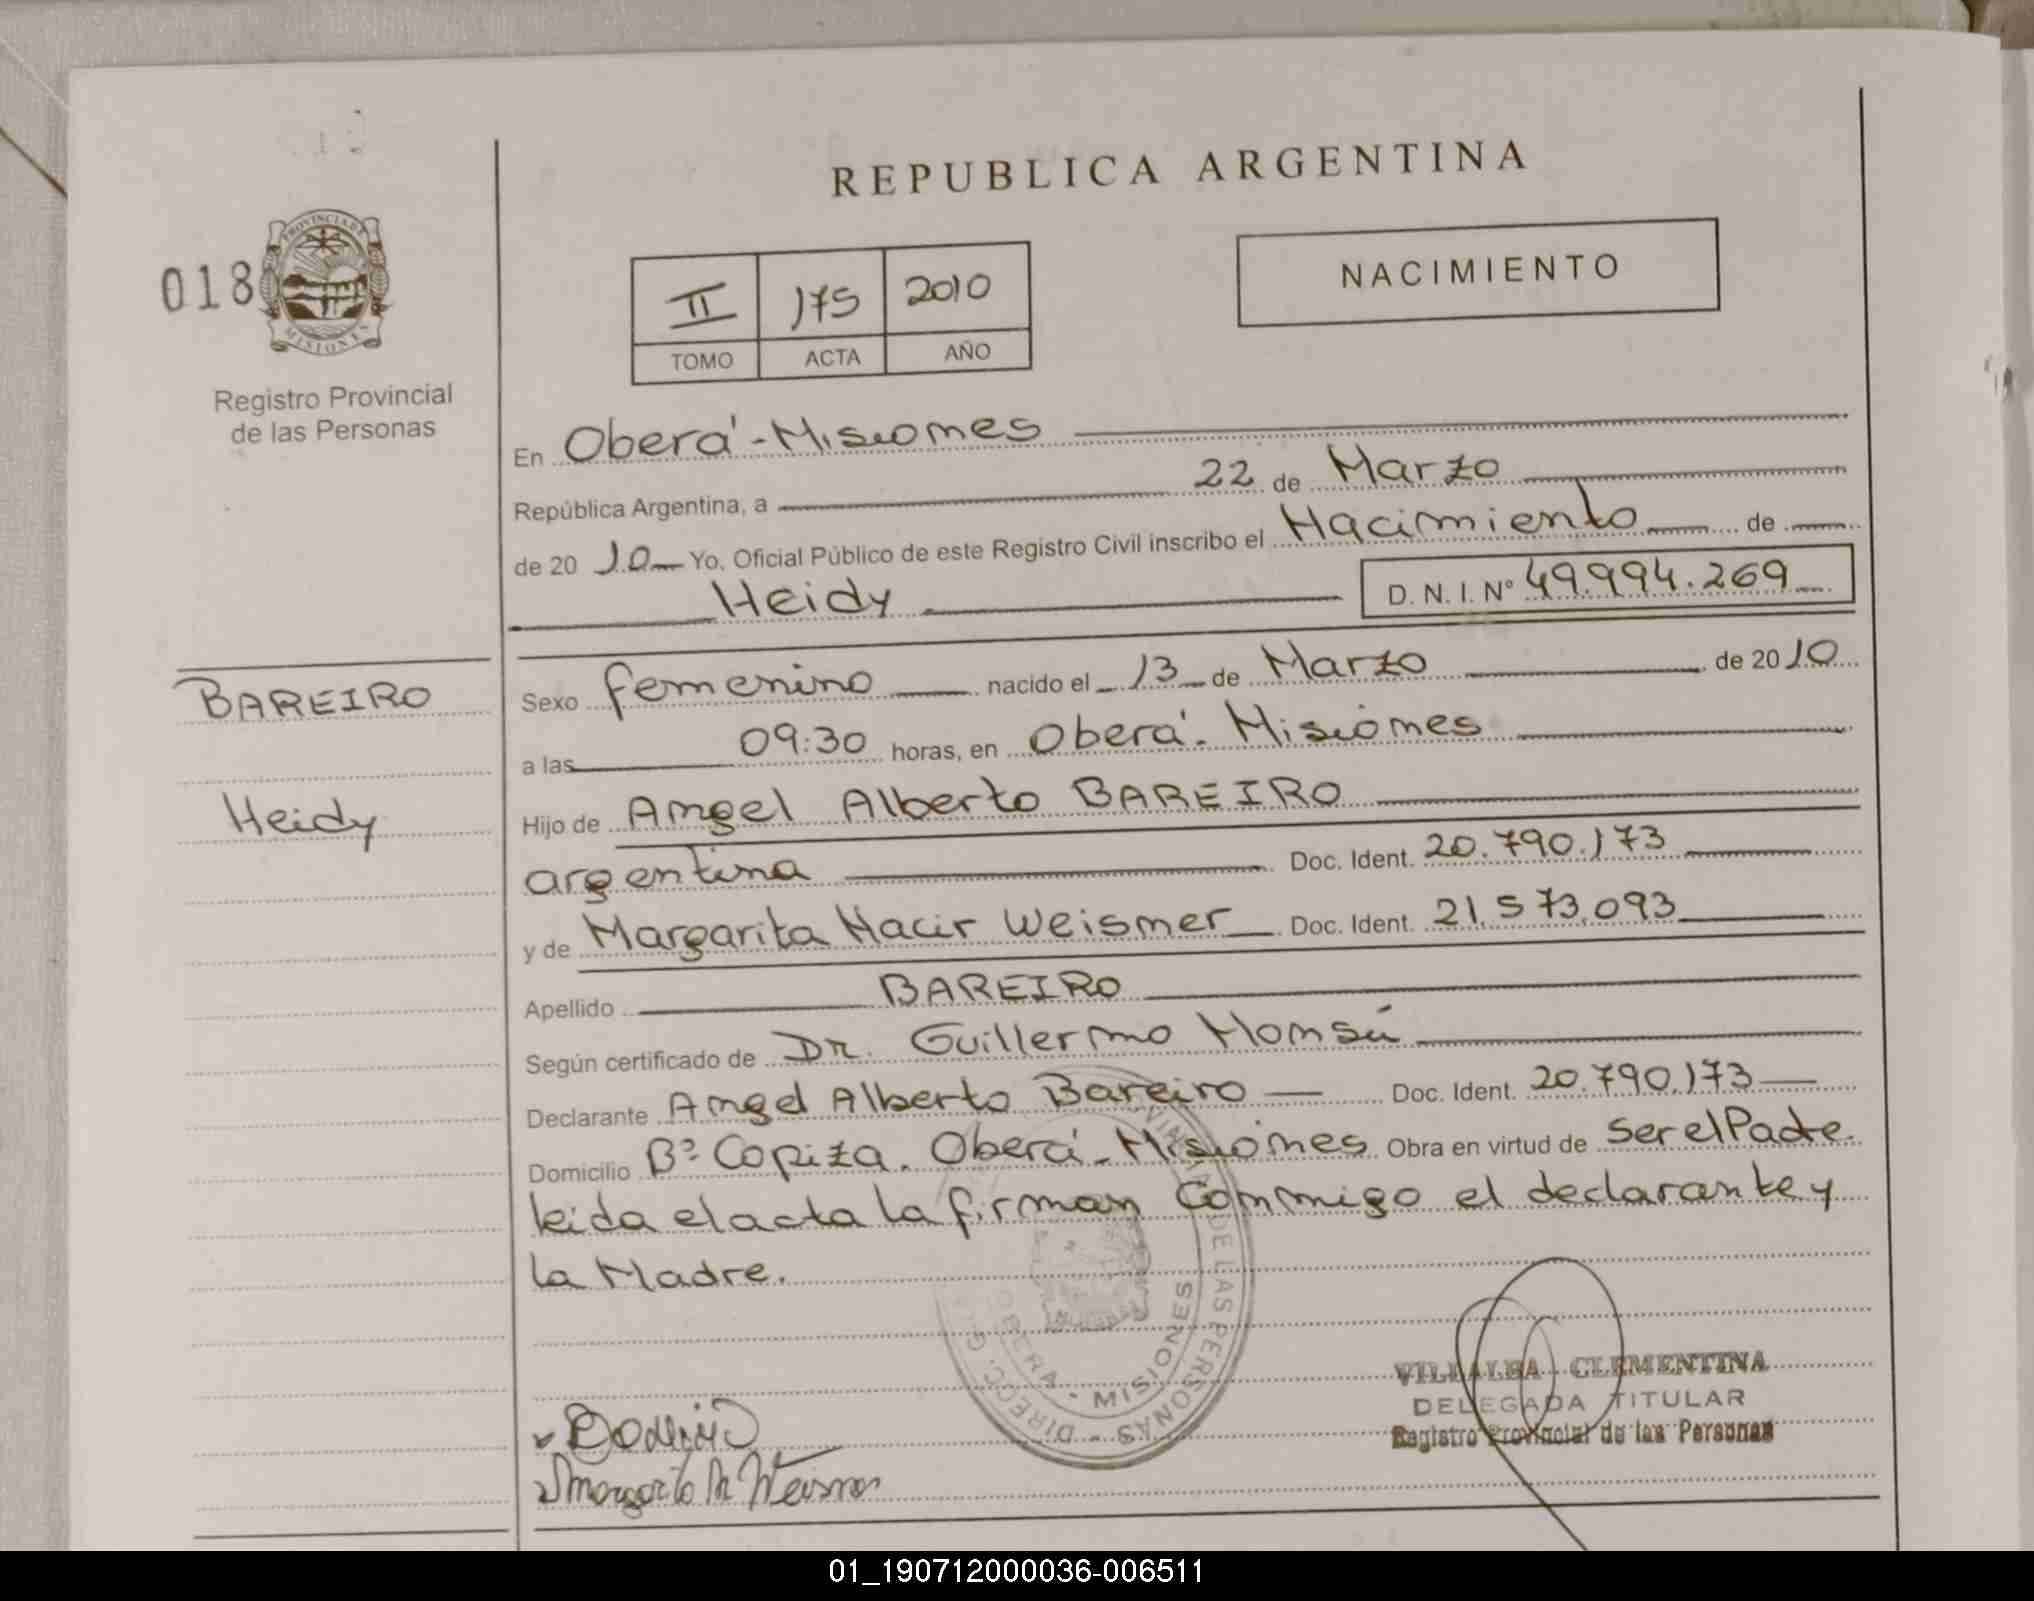 REPUBLICA ARGENTINA
018
PROVINCIA DE
MISIONES
Registro Provincial
de las Personas
II 175 2010
TOMO ACTA AÑO
NACIMIENTO
En Oberá - Misiones
República Argentina, a 22 de Marzo
de 20 10 Yo, Oficial Público de este Registro Civil inscribo el Nacimiento de
Heidy D. N. I. Nº 49.994.269
BAREIRO
Heidy
Sexo femenino nacido el 13 de Marzo de 20 10
a las 09:30 horas, en Oberá - Misiones
Hijo de Angel Alberto BAREIRO
argentina Doc. Ident. 20.790.173
y de Margarita Nacir Weismer Doc. Ident. 21.573.093
Apellido BAREIRO
Según certificado de Dr. Guillermo
Declarante Angel Alberto Bareiro Doc. Ident. 20.790.173
Domicilio Bº Copiza. Oberá - Misiones Obra en virtud de ser el Padre.
leida el acta la firman conmigo el declarante y
la Madre.
DE LAS PERSONAS
OBERA - MISIONES
VILLALBA CLEMENTINA
DELEGADA TITULAR
Registro Provincial de las Personas
01_190712000036-006511